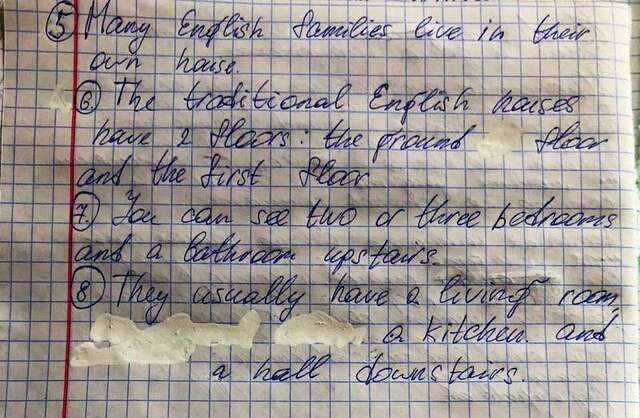 ⑤ Many English families live in their
own house.
⑥ The traditional English houses
have 2 floors: the ground floor
and the first floor
⑦. You can see two or three bedrooms
and a bathroom upstairs.
⑧ They usually have a living room,
a kitchen and
a hall downstairs.